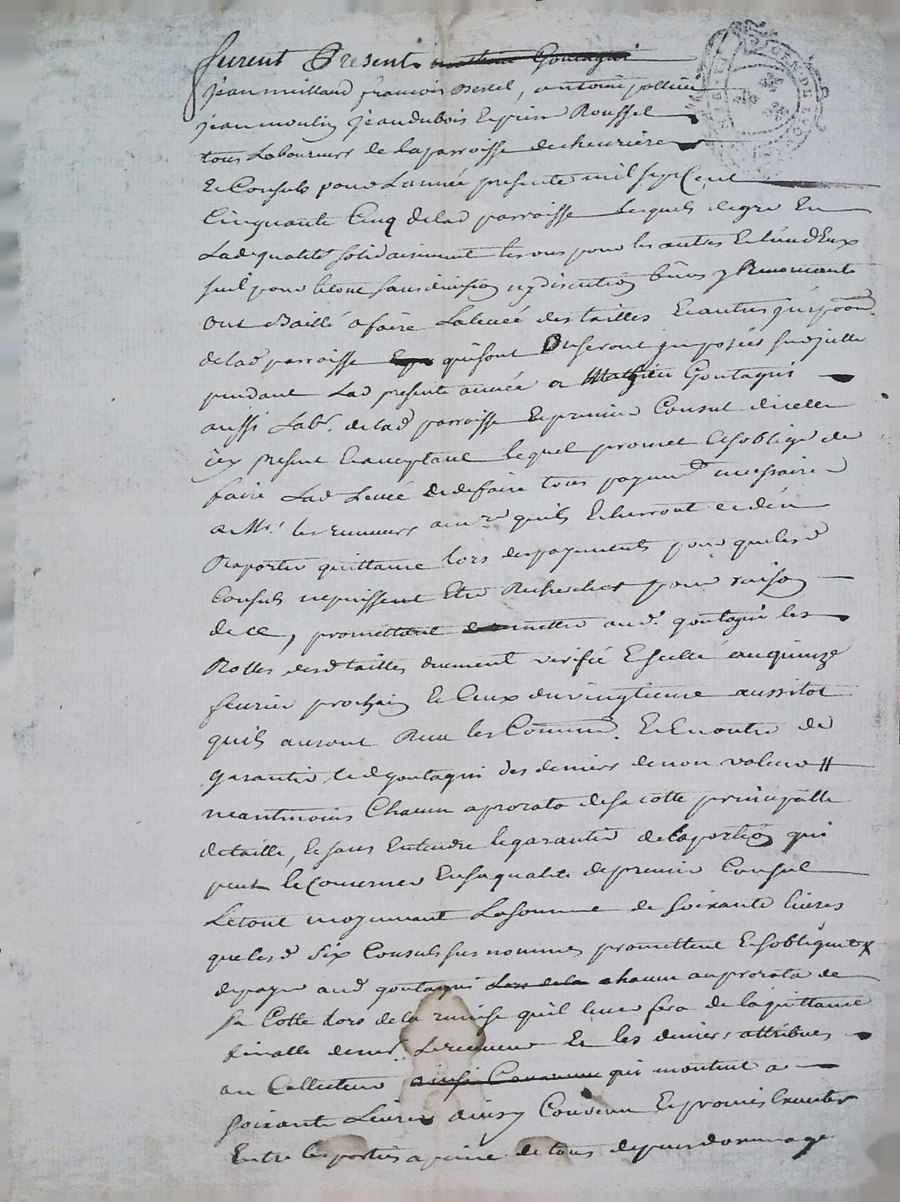 furent Presents mathieu Goutagni
jean millaud françois Bestel, antoine pollie
jean moulin jean dubois Et pierre Roussel
tous Laboureurs de la parroisse de cheurière
Et Consuls pour Lannée presente mil sept Cent
Cinquante Cinq de lad parroisse Lesquels de gre En
Lad qualité solidairement les uns pour les autres Et lun dEux
seul pour le tout sans division ny discution biens y Renoncants
ont Baillé a faire La levée des tailles Et autres
de lad parroisse qui sont Ou seront imposées sur jcelle
pendant Lad presente année a Mathieu Goutagni
aussi Labr. de lad parroisse Et premier Consul dicelle
icy present Et acceptant lequel promet Et soblige de
faire Lad Levée Et de faire tous payemts necessaires
a Mrs les receveurs quils Echerront et den
Raporter quittance lors des payements pour que lesd
Consuls ne puissent Etre Recherchés pour raison
de ce, promettant de mettre aud. goutagni les
Rolles desd tailles duement verifié Et scellé au quinze
feurier prochain Et Ceux du vingtieme aussitot
quils auront Receu les Commd. Et En outre de
garantir led goutagni des deniers de non valeur
neantmoins Chacun a prorata de sa cotte principalle
de taille, Et sans Entendre le garantir de la portion qui
peut le Concerner En sa qualité de premier Consul
Le tout moyennant La somme de soixante livres
que lesd six Consuls sus nommes promettent Et sobligent
de payer aud goutagni Lors de la chacun au prorata de
sa Cotte Lors de la remise quil leur fera de la quittance
finalle de Le receveur Et les deniers attribues
au Collecteur ainsi Convenu qui montent a
soixante Livres ainsy Convenu Et promis
Entre les parties a peine de tous depens dommage